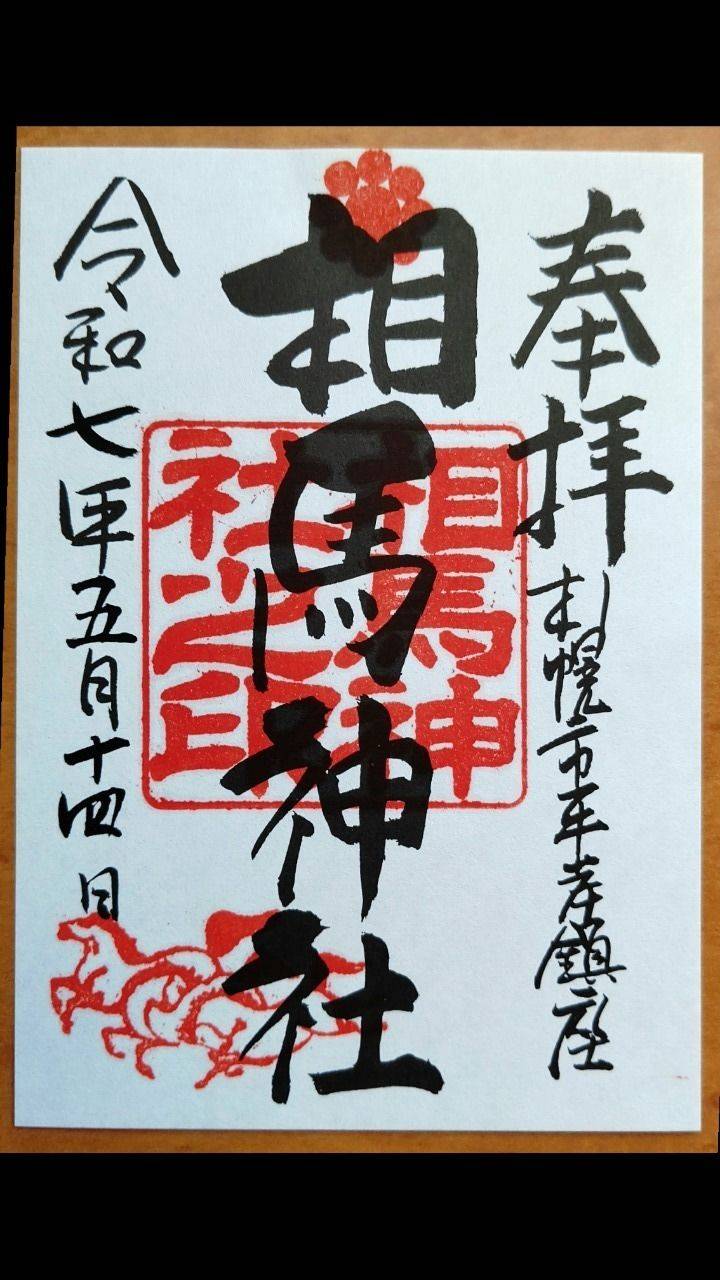 奉拝
札幌市平岸鎮座
相馬神社
相馬神
社之印
令和七年五月十四日